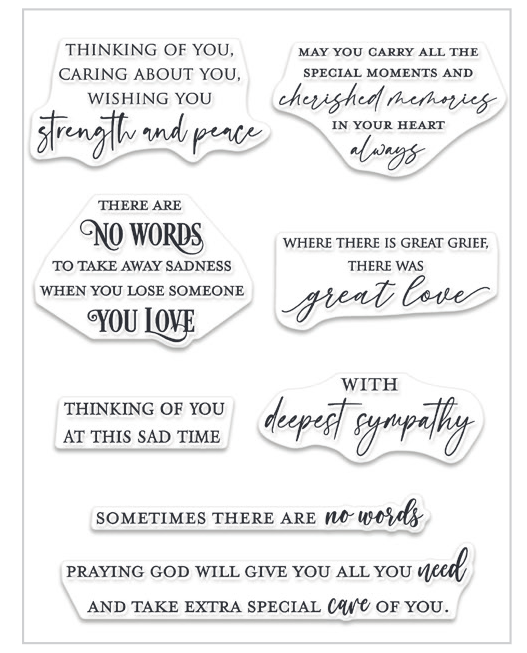 THINKING OF YOU,
CARING ABOUT YOU,
WISHING YOU
strength and peace
MAY YOU CARRY ALL THE
SPECIAL MOMENTS AND
cherished memories
IN YOUR HEART
always
THERE ARE
NO WORDS
TO TAKE AWAY SADNESS
WHEN YOU LOSE SOMEONE
YOU LOVE
WHERE THERE IS GREAT GRIEF,
THERE WAS
great love
THINKING OF YOU
AT THIS SAD TIME
WITH
deepest sympathy
SOMETIMES THERE ARE no words
PRAYING GOD WILL GIVE YOU ALL YOU need
AND TAKE EXTRA SPECIAL care OF YOU.